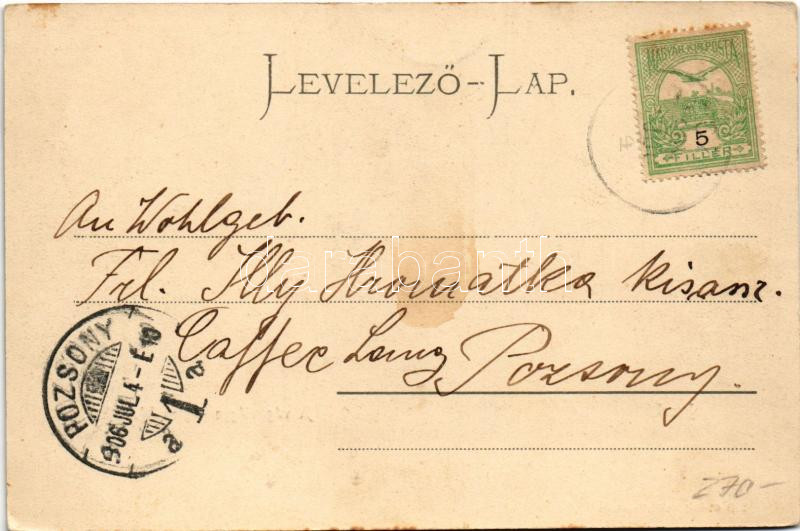 LEVELEZŐ-LAP.
MAGYAR KIR. POSTA
5
FILLÉR
An Wohlgeb.
Frl. Illy Hromatka kisasz.
Caffee Lang
Pozsony.
POZSONY
906 JUL 4 - E 10
a 1 a
darabanth
270-